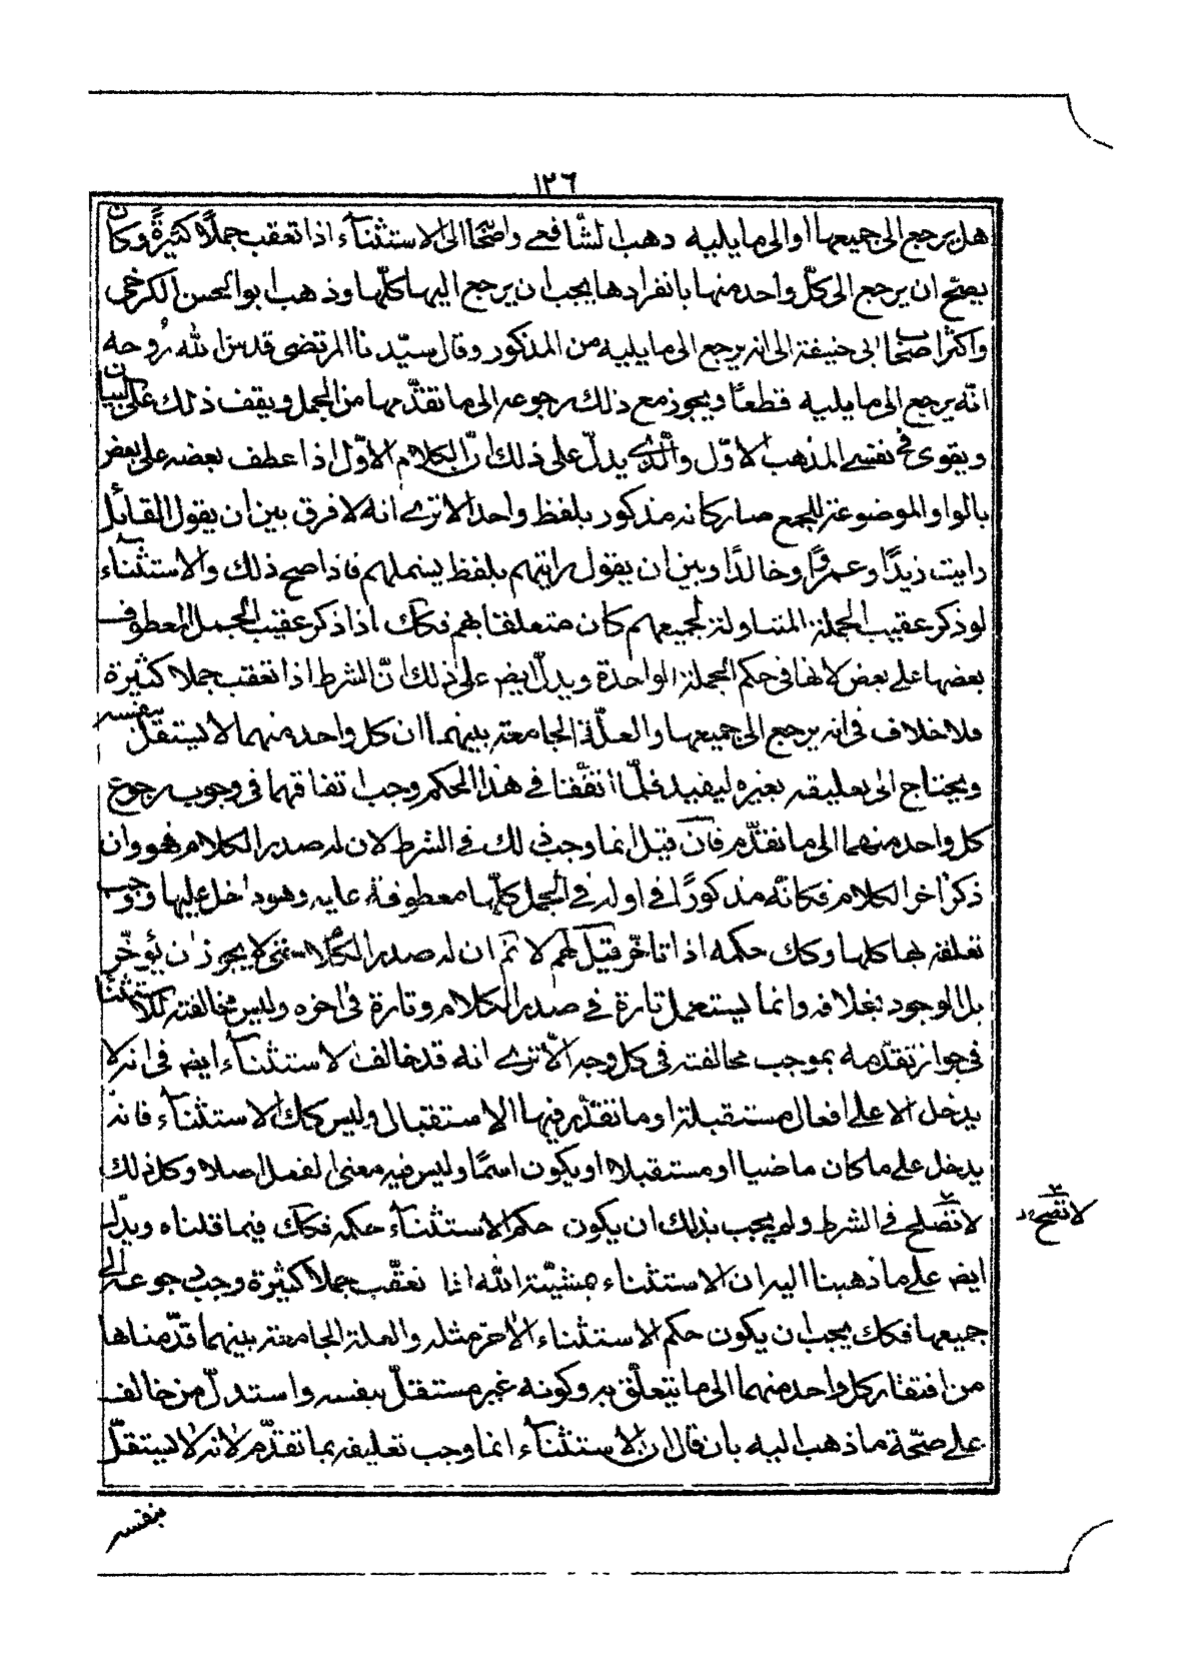 ١٢٦
هل يرجع الى جميعها او الى ما يليه ذهب الشافعي واصحابه الى ان الاستثناء اذا تعقب جملًا كثيرةً وكان
يصحّ ان يرجع الى كلّ واحد منها بانفرادها يجب ان يرجع اليها كلّها وذهب ابو الحسن الكرخي
واكثر اصحاب ابى حنيفة الى انه يرجع الى ما يليه من المذكور وقال سيّدنا المرتضى قدس الله روحه
انّه يرجع الى ما يليه قطعًا ويجوز مع ذلك رجوعه الى ما تقدّمها من الجمل ويقف ذلك على البيان
ويقوى في نفسي المذهب الاوّل والّذي يدلّ على ذلك انّ الكلام الاوّل اذا عطف بعضه على بعض
بالواو الموضوعة للجمع صار كانه مذكور بلفظ واحد الا ترى انه لا فرق بين ان يقول القائل
رايت زيدًا وعمرًا وخالدًا وبين ان يقول رايتهم بلفظ يشملهم فاذا صح ذلك والاستثناء
لو ذكر عقيب الجملة المتناولة لجميعهم كان متعلقا بهم فكك اذا ذكر عقيب الجمل المعطوف
بعضها على بعض لانها في حكم الجملة الواحدة ويدلّ ايض على ذلك انّ الشرط اذا تعقب جملا كثيرة
فلا خلاف في انه يرجع الى جميعها والعلّة الجامعة بينهما ان كل واحد منهما لا يستقل بنفسه
ويحتاج الى تعليقه بغيره ليفيد فلمّا اتفقا في هذا الحكم وجب اتفاقهما في وجوب رجوع
كل واحد منهما الى ما تقدّم فان قيل انما وجب ذلك في الشرط لان له صدر الكلام فهو وان
ذكر اخر الكلام فكانّه مذكورًا في اوله في الجمل كلّها معطوفة عليه وهو داخل عليها وجب
تعلقه بها كلها وكك حكمه اذا تاخّر قيل لهم لا نم ان له صدر الكلام حتى لا يجوز ان يؤخّر
بل الوجود بخلافه وانما يستعمل تارة في صدر الكلام وتارة في اخره وليس مخالفته للاستثناء
في جواز تقدّمه بموجب مخالفته في كل وجه الا ترى انه قد خالف الاستثناء ايض في انه لا
يدخل الا على افعال مستقبلة او ما تقدّم فيها الاستقبال وليس كك الاستثناء فانه
يدخل على ما كان ماضيا او مستقبلا او يكون اسمًا وليس فيه معنى الفعل اصلا وكذلك
لا تصلح في الشرط ولم يجب بذلك ان يكون حكم الاستثناء حكمه فكك فيما قلناه ويدلّ
لا تصح
ايض على ما ذهبنا اليه ان الاستثناء بمشيّة الله اذا تعقّب جملا كثيرة وجب رجوعه الى
جميعها فكك يجب ان يكون حكم الاستثناء الاخر مثله والعلة الجامعة بينهما قدّمناها
من افتقار كل واحد منهما الى ما يتعلّق به وكونه غير مستقلّ بنفسه واستدلّ من خالف
على صحّة ما ذهب اليه بان قال ان الاستثناء انما وجب تعليقه بما تقدّم لانه لا يستقلّ
بنفسه